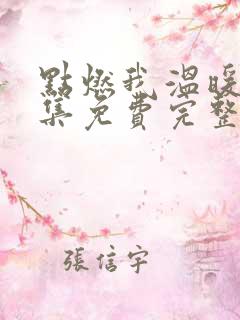 點燃我,溫暖
集免費完整
張信宇